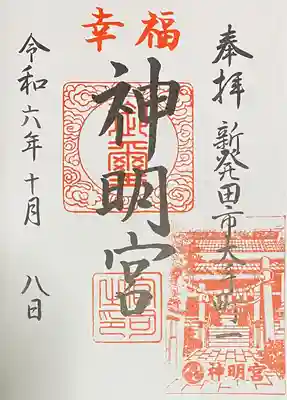 幸福
奉拝 新発田市大手町一
神明宮
令和六年十月 八日
神明宮